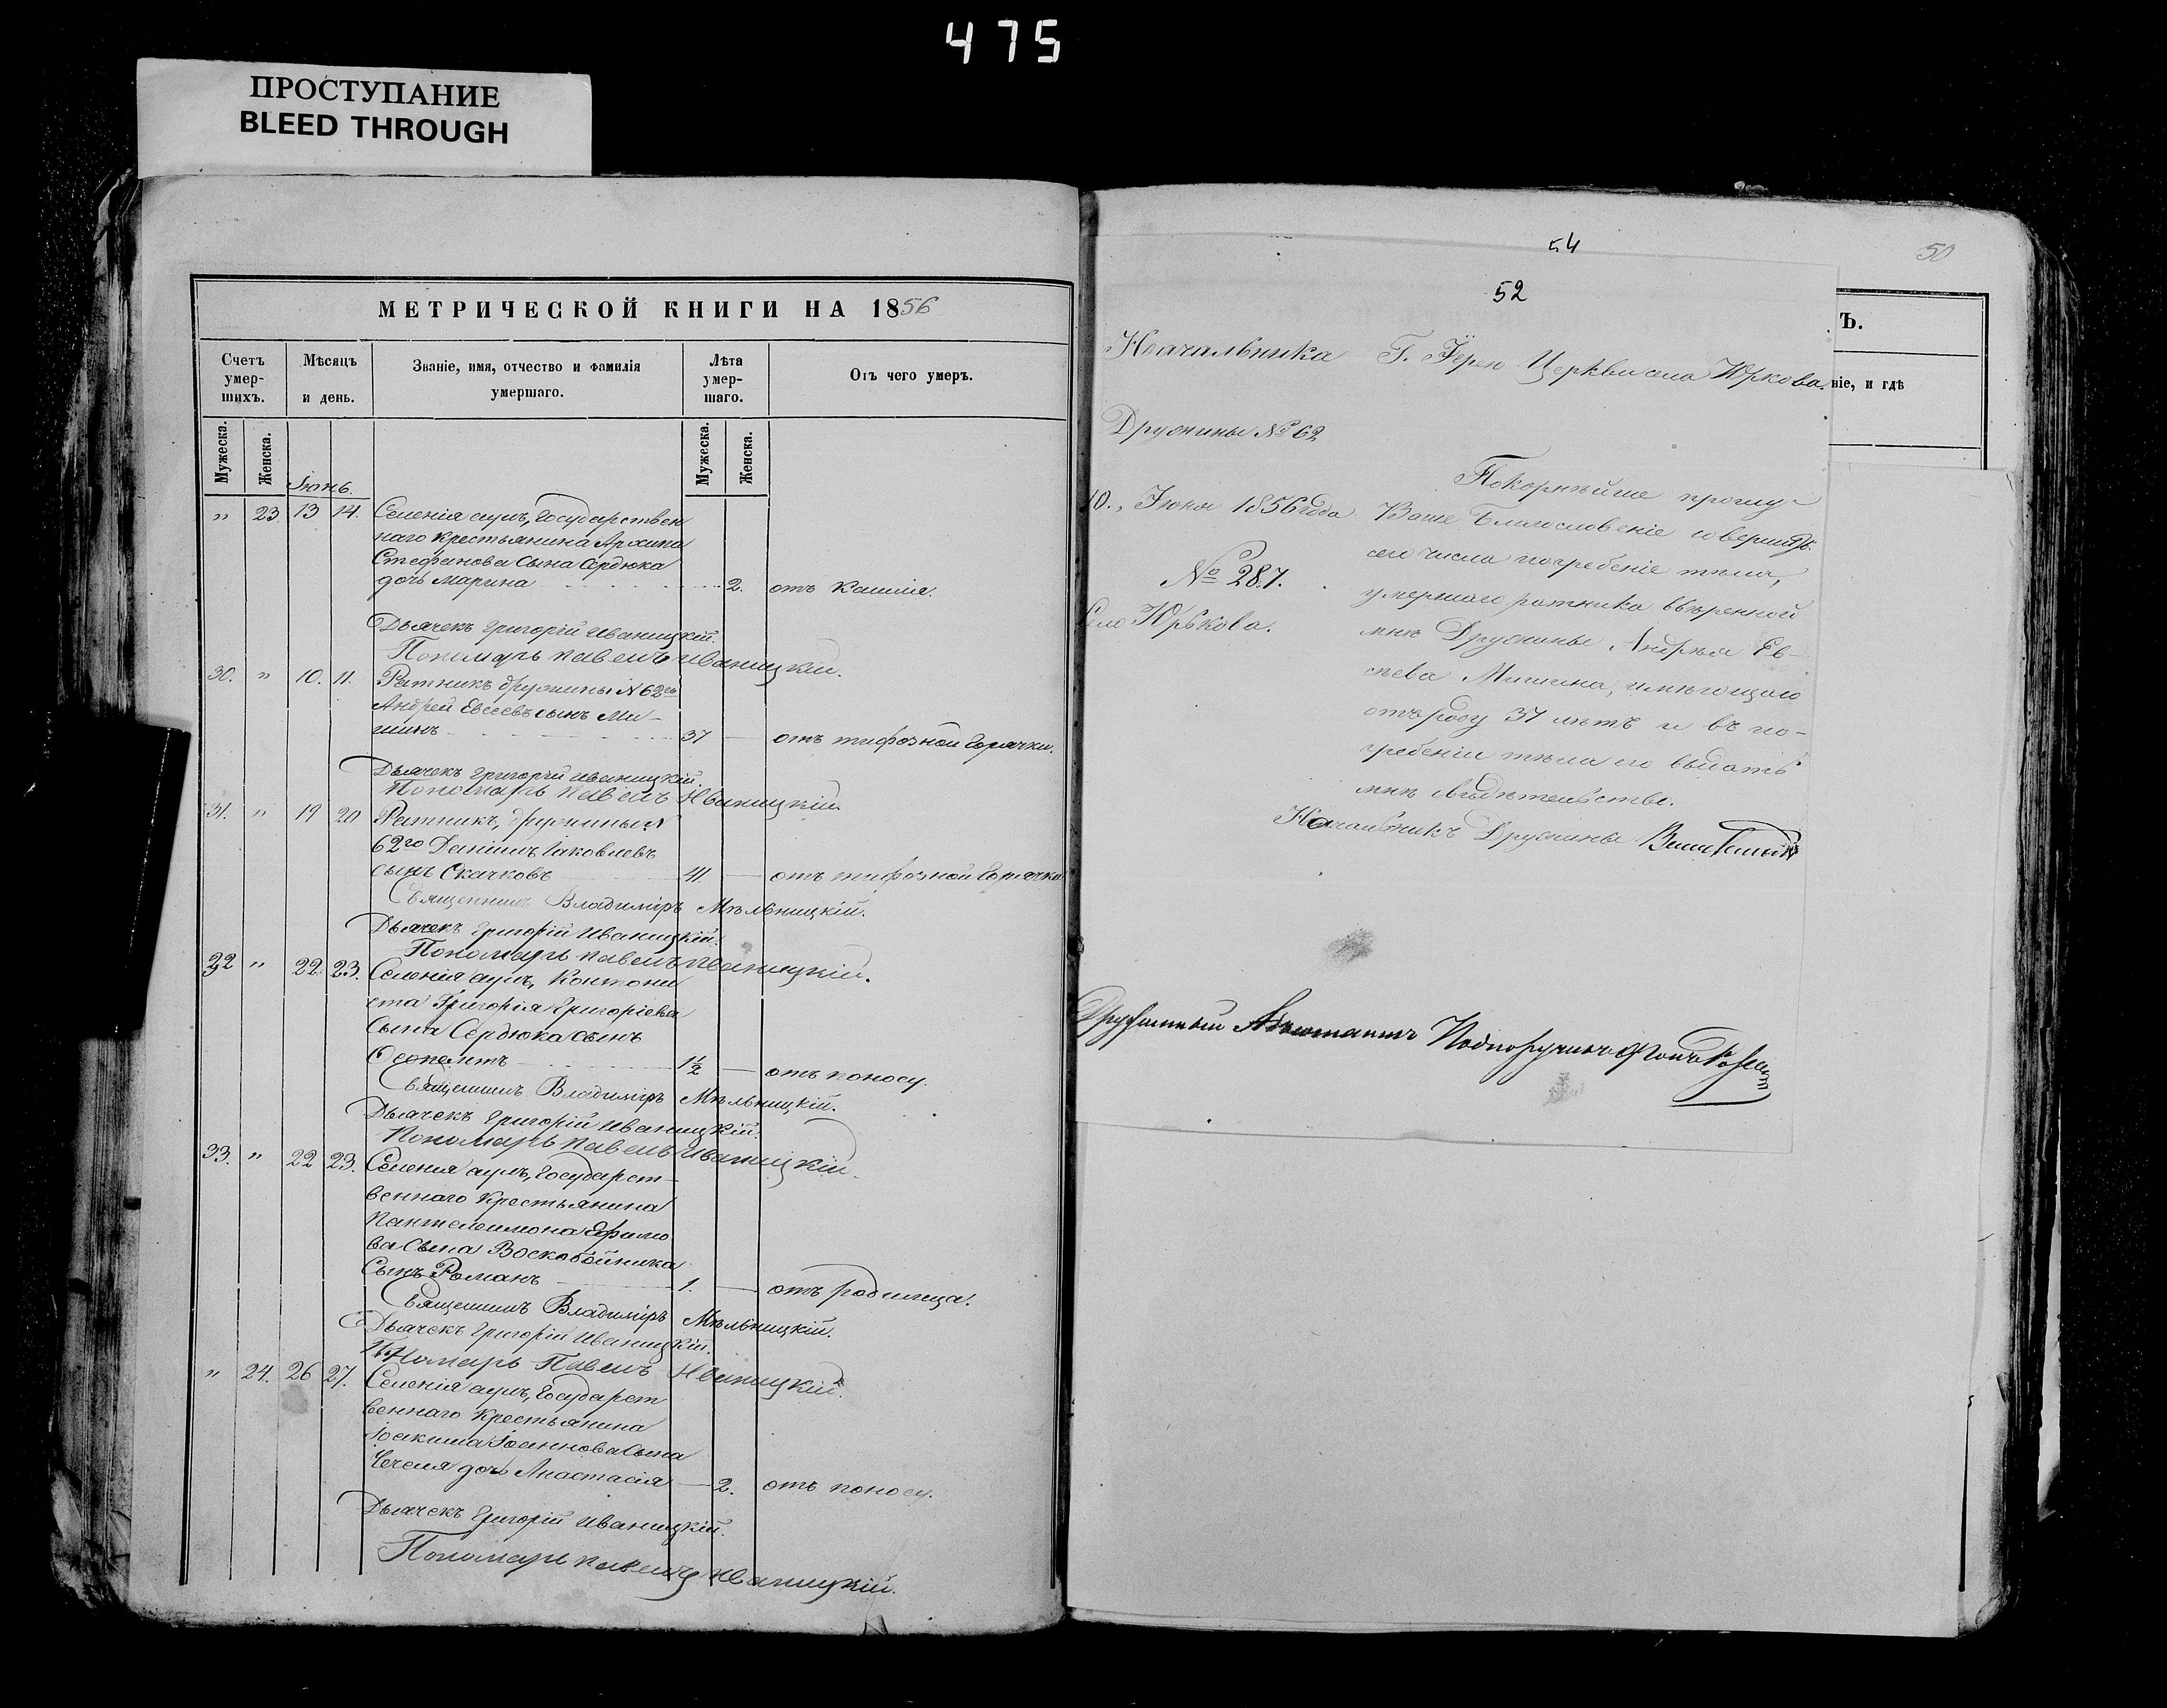 475
ПРОСТУПАНИЕ
BLEED THROUGH
МЕТРИЧЕСКОЙ КНИГИ НА 1856
Счетъ умер-шихъ.
Мѣсяцъ и день.
Званіе, имя, отчество и фамилія умершаго.
Лѣта умер-шаго.
Отъ чего умеръ.
Мужеска.
Женска.
Мужеска.
Женска.
Іюнь.
" 23. 13 14. Селенія сумъ, Государствен
наго крестьянина Архипа
Стефанова сына Сердюка
дочь Марина 2. отъ кашля.
Дьячекъ Григорій Иваницкій.
Пономарь Павелъ Иваницкій.
30. " 10. 11. Ратникъ дружины N 62го
Андрей Евсеевъ сынъ Ми-
шинъ 37 — отъ тифозной горячки.
Дьячекъ Григорій Иваницкій.
Пономарь Павелъ Иваницкій.
31. " 19 20 Ратникъ, дружины N
62го Даніилъ Іаковлевъ
сынъ Скачковъ 41. — отъ тифозной горячки
Священникъ Владиміръ Мѣльницкій.
Дьячекъ Григорій Иваницкій.
Пономарь Павелъ Иваницкій.
32 " 22. 23. Селенія сумъ, Кантони
ста Григорія Григоріева
сына Сердюка сынъ
1½ — отъ поносу.
Священникъ Владиміръ Мѣльницкій.
Дьячекъ Григорій Иваницкій.
Пономарь Павелъ Иваницкій.
33. " 22 23. Селенія сумъ, Государст-
веннаго крестьянина
Пантелеимона
ва сына Воскобойника
Сынъ Романъ 1. — отъ родимца.
Священникъ Владиміръ Мѣльницкій.
Дьячекъ Григорій Иваницкій.
Пономарь Павелъ Иваницкій.
" 24. 26 27. Селенія сумъ, Государст
веннаго крестьянина
Іоакима Іоаннова сына
дочь Анастасія — 2. отъ поносу.
Дьячекъ Григорій Иваницкій.
Пономарь Павелъ Иваницкій.
54
50
52
Ъ.
ніе, и гдѣ
Начальника
Дружины № 62
10., Іюня 1856 года
№ 287.
Село Юрьково.
Г. Іерею Церкви села Юркова.
Покорнѣйше прошу
Ваше Благословеніе совершить
сего числа погребеніе тѣла,
умершаго ратника ввѣренной
мнѣ Дружины, Андрея Ев-
сѣева Мишина, имѣющаго
отъ роду 37 лѣтъ и въ по-
гребеніи тѣла его выдать
мнѣ свидѣтельство.
Начальникъ Дружины
Дружинный Адъютантъ Подпоручикъ Фонъ